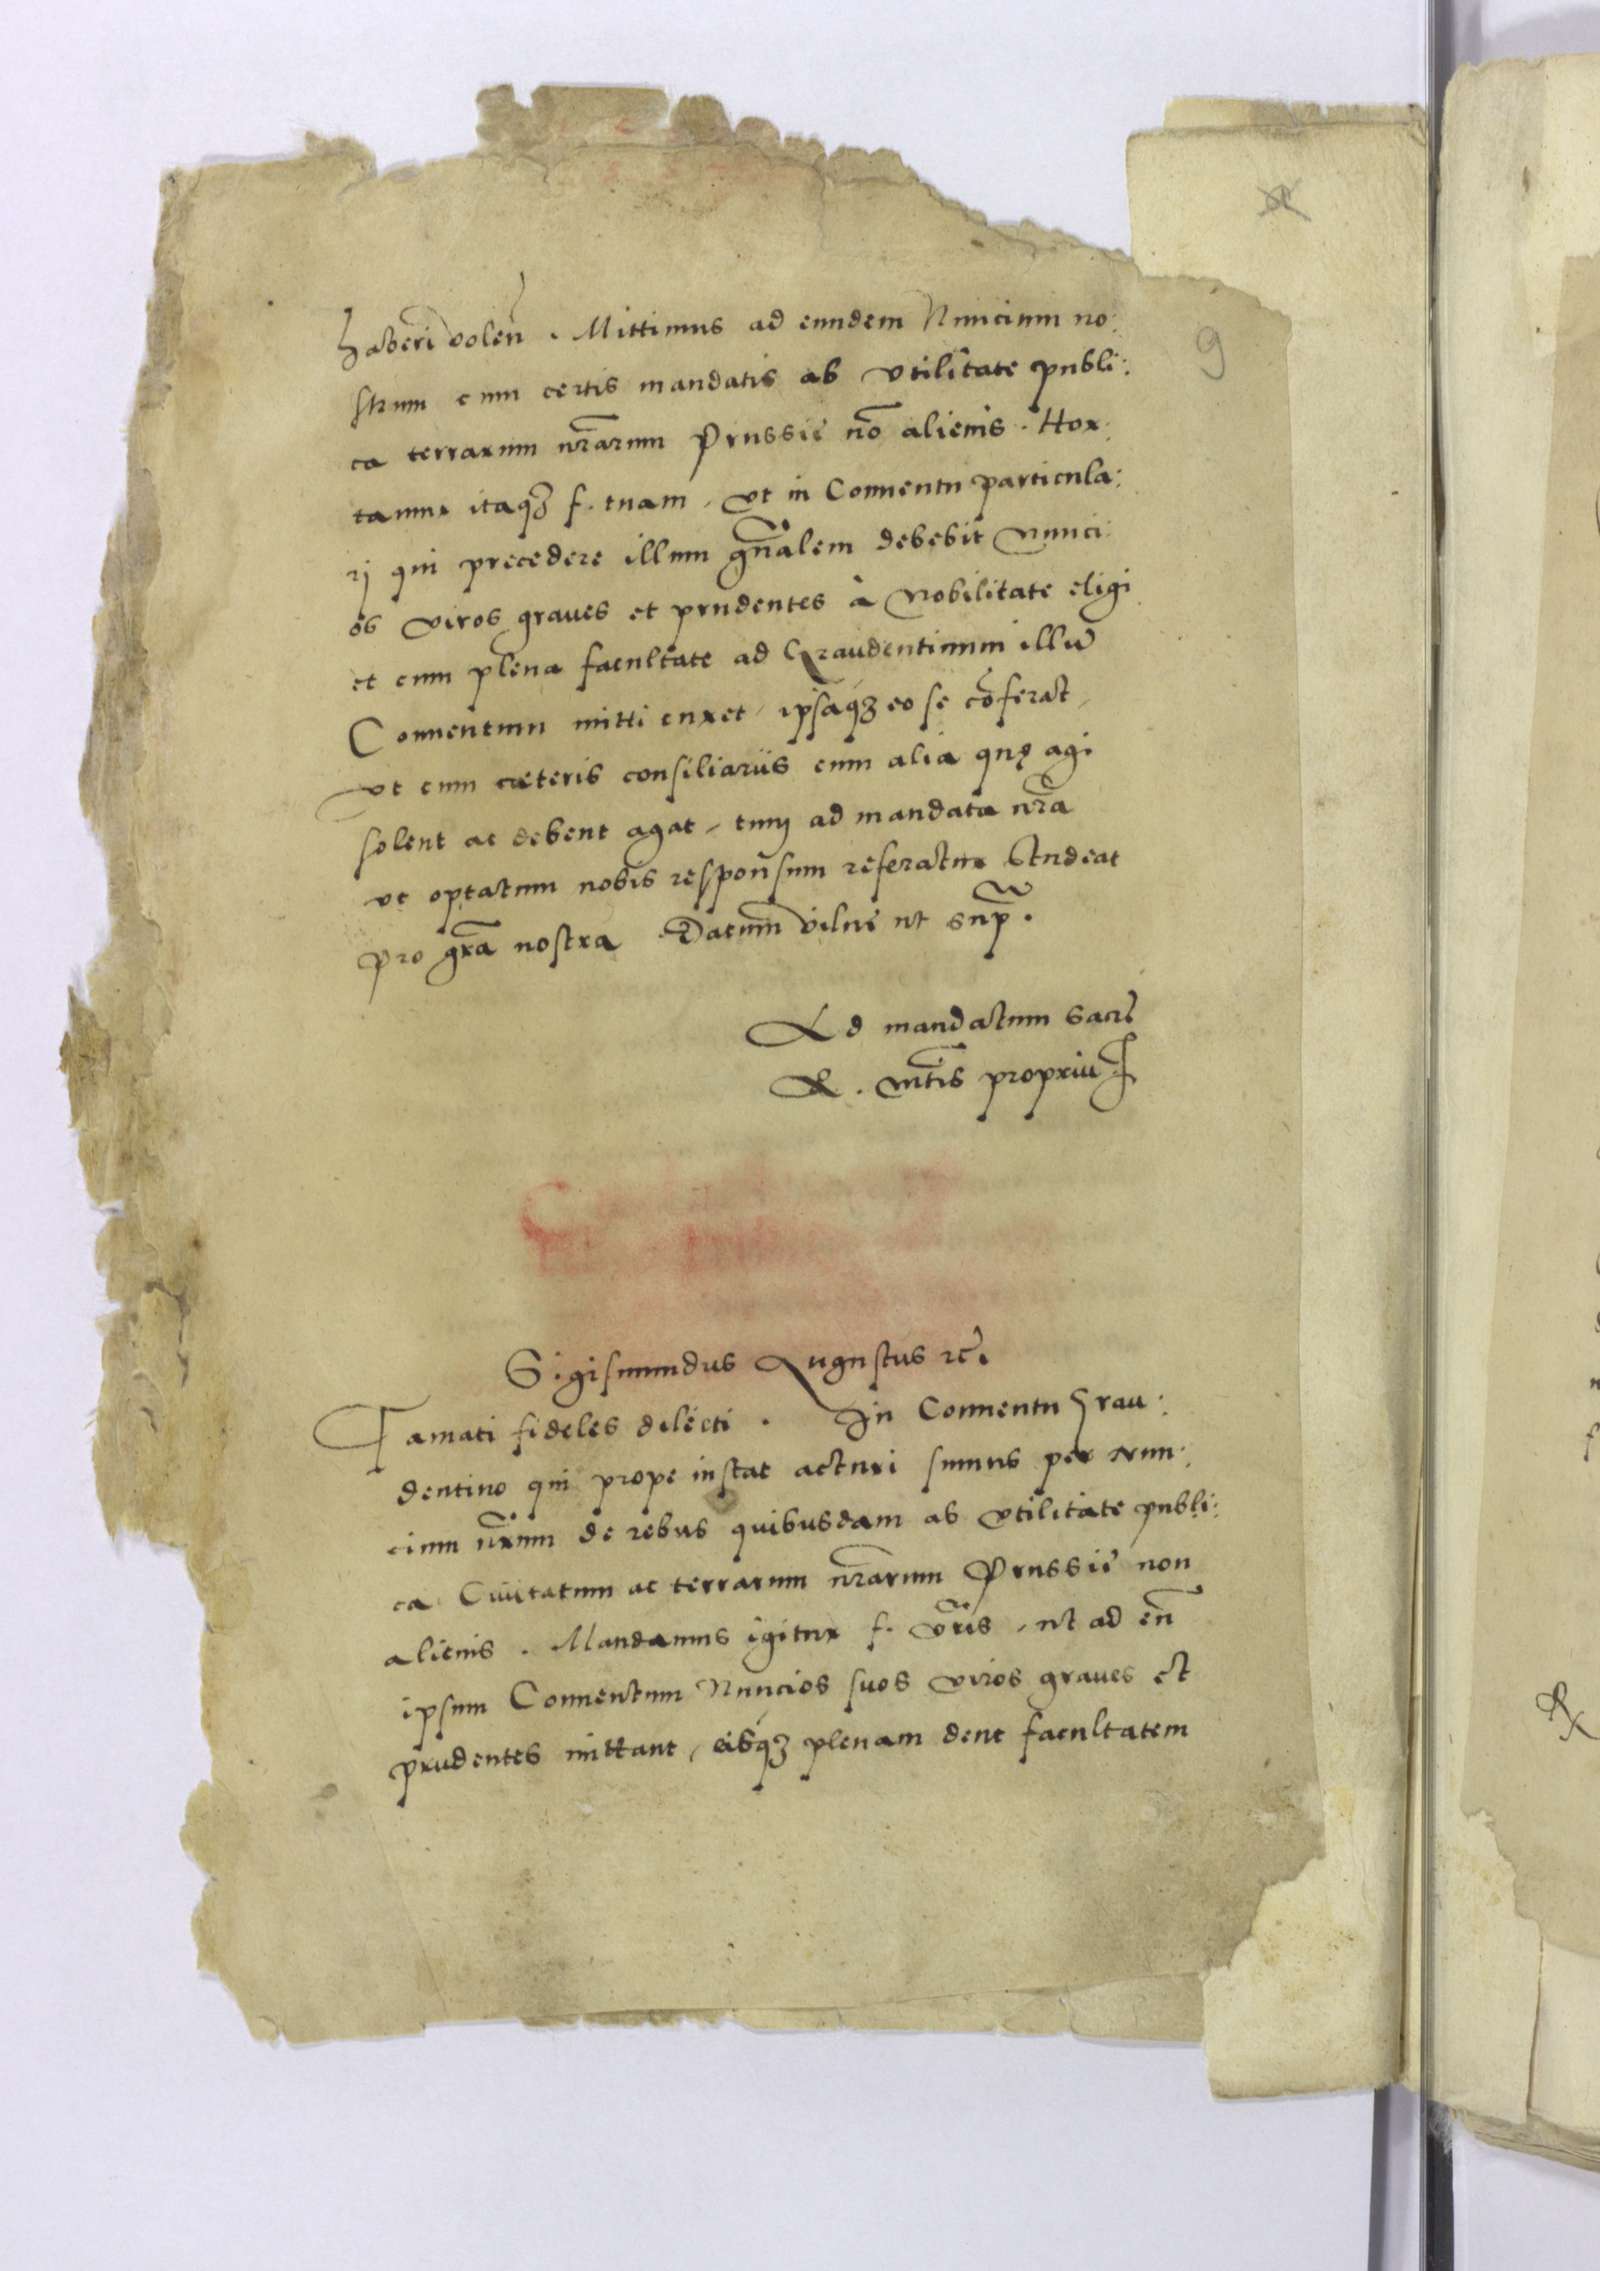 haberi volen̄. Mittimus ad eundem Nuncium no:
strum cum certis mandatis ab vtilitate publi:
ca terrarum nr̄arum Prussie nō alienis. Hor:
tamur itaqꝫ f. tuam, vt in Conuentu particula:
rj qui precedere illum gn̄alem debebit Nunci:
os viros graues et prudentes à Nobilitate eligi
et cum plena facultate ad Graudentinum illū
Conuentum mitti curet, ipsáqꝫ eo se cōferat,
vt cum cæteris consiliarijs cum alia quę agi
solent ac debent agat, tum ad mandata nr̄a
vt optatum nobis responsum referatur studeat
pro gr̄a nostra Datum Vilnę ut sup̄.
Ad mandatum Sacrę
R. Mt̄is propriū
9
Sigismundus Augustus rc̄.
Famati fideles dilecti. In Conuentu Grau:
dentino qui prope instat acturi sumus per Nun:
cium nr̄um de rebus quibusdam ab vtilitate publi:
ca Ciuitatum ac terrarum nr̄arum Prussie non
alienis. Mandamus igitur f. vr̄is, ut ad eū
ipsum Conuentum Nuncios suos viros graues et
prudentes mittant, eisqꝫ plenam dent facultatem